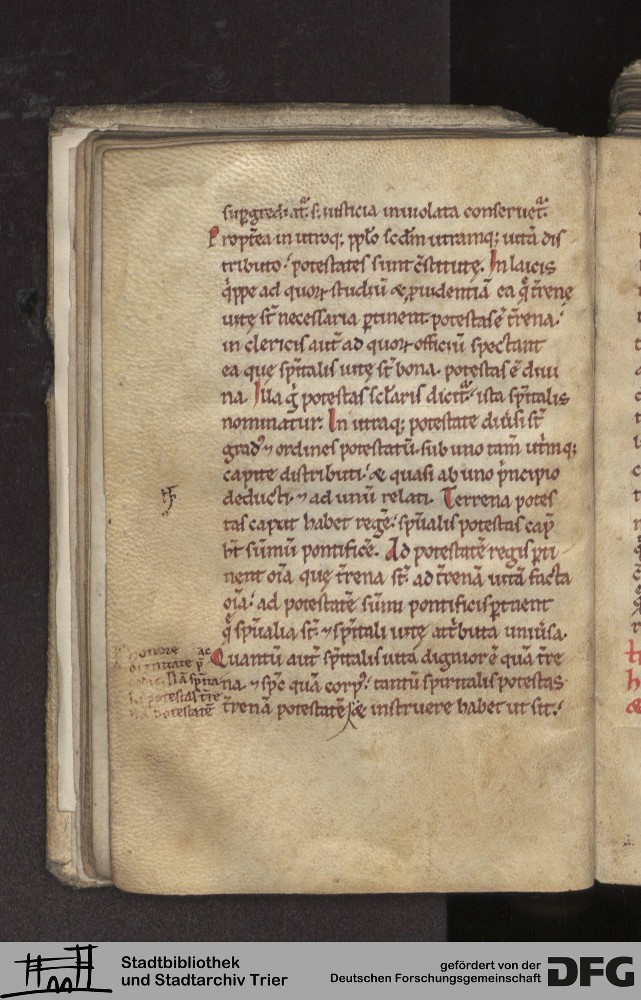 sup̱grediat͛. s; iusticia inuiolata conseruet͛.
Propt̄ea in utroq; pp̄lo scd̄m utramq; uitā dis
tributo. potestates sunt c̄stitutę. In laicis
q̊ppe ad quoꝝ studiū & ꝓuidentiā ea q̄ t̄renę
uitę st̄ necessaria ꝑtinent. potestas ē t̄rena.
in clericis aut̄ ad quoꝝ officiū spectant
ea que sp̄italis uitę st̄ bona. potestas ē diui
na. Illa g̊ potestas sc̄laris dicit͛. ista sp̄italis
nominatur. In utraq; potestate diūsi st̄
grad᷒ ⁊ ordines potestatū. sub uno tam̄ utrīmq;
capite distributi. & quasi ab uno p̄ncipio
deducti. ⁊ ad unū relati. Terrena potes
tas caput habet regē. sp̄ualis potestas cap̄
ht̄ sūmū pontificē. Ad potestatē regis ꝑti
nent oīa que t̄rena st̄. ad t̄renā uitā facta
oīa. ad potestatē sūmi pontificis ꝑtinent
q̄ sp̄ualia st̄. ⁊ sp̄itali uitę att̄buta uniūsa.
Quantū aut̄ sp̄italis uita dignior ē quā t̄re
na. ⁊ sp̄c quā corp᷒. tantū spiritalis potestas
t̄renā potestatē &  instruere habet ut sit.
honore ac
dignitate p̄
sp̄ita
potestas t̄re
potestatē
Stadtbibliothek
und Stadtarchiv Trier
gefördert von der
Deutschen Forschungsgemeinschaft
DFG